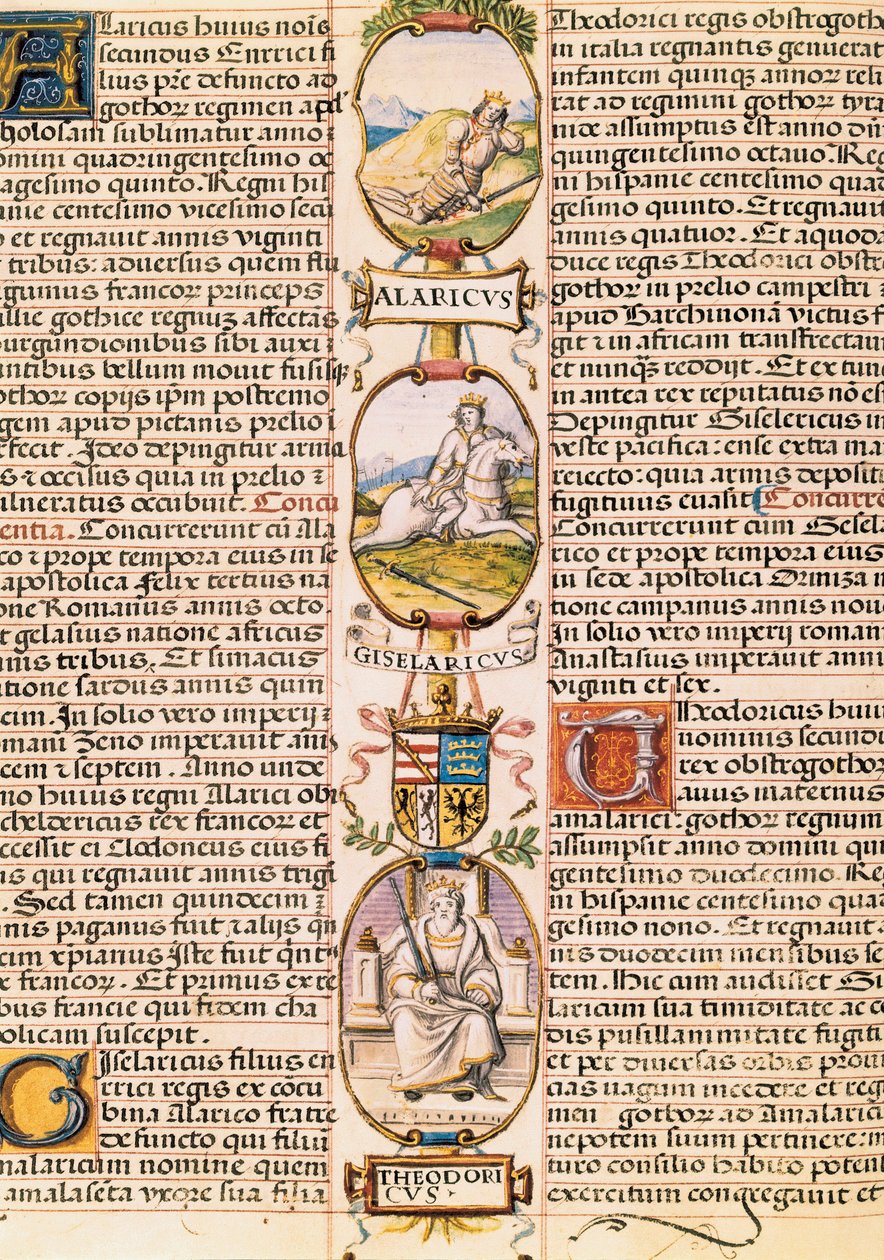 Alaricus huius noīs
secundus Enrrici fi
lius pr̄e defuncto ad
gothoꝝ regimen apd'
tholosam sublimatur anno
omini quadringentesimo oc
agesimo quinto. Regni his
anie centesimo vicesimo secū
o et regnauit annis viginti
tribus: aduersus quem flu
uigunius francoꝝ princeps
llie gothice regnuꝫ affectās
urgundionibus sibi auxi
antibus bellum mouit fusisqꝫ
othoꝝ copijs ip̄m postremo
gem apud pictanis prelio ī
efecit. Ideo depingitur arma
s ⁊ occisus quia in prelio ⁊
ulneratus occubuit. Concu
entia. Concurrerunt cū Ala
co ⁊ prope tempora eius in se
apostolica Felix tertius na
one Romanus annis octo.
t gelasius natione africus
nnis tribus. Et simacus
atione sardus annis quin
cim. In solio vero imperij
omani Zeno imperauit anīs
cem ⁊ septem. Anno unde
mo huius regni Alarici obi
cheldericus rex francoꝝ et
uccessit ei Clodoneus eius fi
us qui regnauit annis trigī
. Sed tamen quindecim
nnis paganus fuit ⁊ alijs qīn
ecim xp̄ianus Iste fuit qīnt
x francoꝝ. Et primus ex re
bus francie qui fidem cha
olicam suscepit.
Giselaricus filius en
rrici regis ex cōcu
bina Alarico fratre
defuncto qui filiū
malaricum nomine quem
amalasēta vxore sua filia
ALARICVS
GISELARICVS
THEODORI
CVS
Theodorici regis obstrogoth
in italia regnantis genuerat
infantem quinqꝫ annoꝝ reli
rat ad regimini gothoꝝ tyra
nide assumptus est anno dn̄
quingentesimo octauo. Reg
ni hispanie centesimo quad
gesimo quinto. Et regnauit
annis quatuor. Et aquoda
duce regis Theodorici obstro
gothoꝝ in prelio campestri ⁊
apud Barchinonā victus f
git ⁊ in africam transfrectauit
et nunqꝫ reddijt. Et ex tunc
in antea rex reputatus nō est
Depingitur Giselericus in
veste pacifica: ense extra ma
reiecto: quia armis deposit
fugitiuus euasit Concurre
Concurrerunt cum Gesela
rico et prope tempora eius
in sede apostolica Ormiza n
tione campanus annis nou
In solio vero imperij roman
Anastasius imperauit anni
viginti et sex.
Theodoricus huiu
nominis secundu
rex obstrogothoꝝ
auus maternus
amalarici: gothoꝝ regnum
assumpsit anno domini quin
gentesimo duodecimo. Reg
ni hispanie centesimo quad
gesimo nono. Et regnauit a
nis duodecim mensibus se
tem. Hic cum audisset Gi
laricum sua timiditate ac co
dis pusillanimitate fugiti
et per diuersas orbis prouin
cias uagum incedere et regi
men gothoꝝ ad Amalaricu
nepotem suum pertinere: m
turo consilio habito potent
exercitum congregauit et